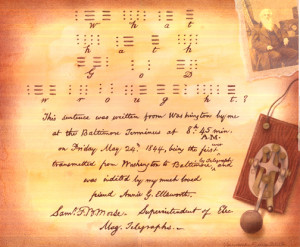 W h a t
h a t h
G o D
w r o u g h t . ?
This sentence was written from Washington by me
at the Baltimore Terminus at 8h. 45 min.
A.M.
on Friday May 24th. 1844, being the first
transmitted from Washington to Baltimore, by Telegraph, and
was indited by my much loved
friend Annie G. Ellsworth.
Sam. F. B. Morse Superintendent of Elec.
Mag. Telegraphs.